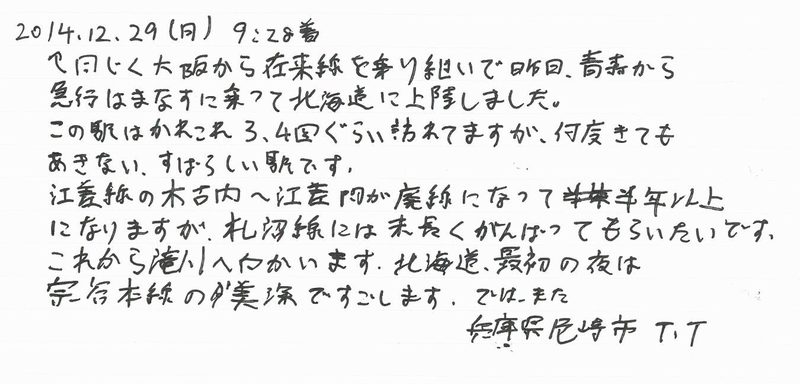 2014.12.29(月) 9:28着
↑同じく大阪から在来線を乗り継いで昨日、青森から
急行はまなすに乗って北海道に上陸しました。
この駅はかれこれ3、4回ぐらい訪れてますが、何度きても
あきない、すばらしい駅です。
江差線の木古内〜江差間が廃線になって半年以上
になりますが、札沼線には末長くがんばってもらいたいです。
これから滝川へ向かいます。北海道、最初の夜は
宗谷本線の美深ですごします。では、また
兵庫県尼崎市 T.T